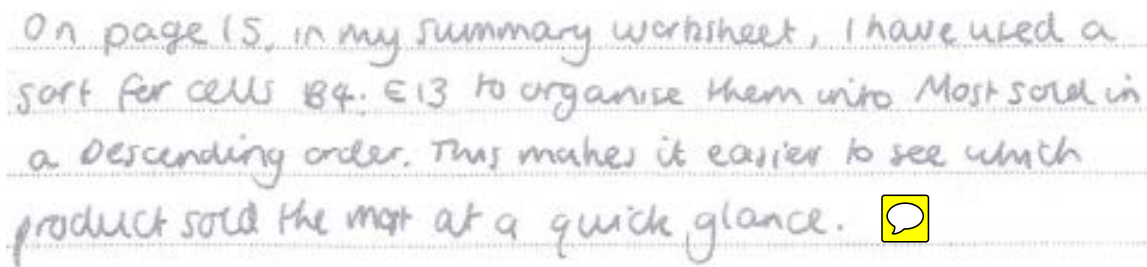 On page 15, in my summary worksheet, I have used a
sort for cells B4:E13 to organise them into Most sold in
a Descending order. This makes it easier to see which
product sold the most at a quick glance.